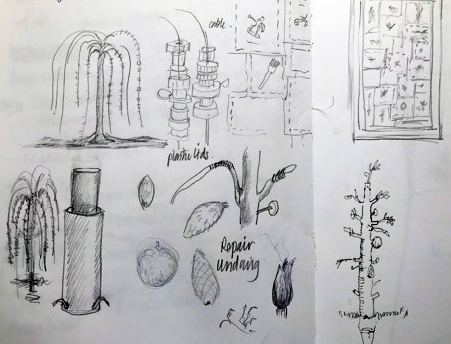 cable
plastic lids
Repair
undoing